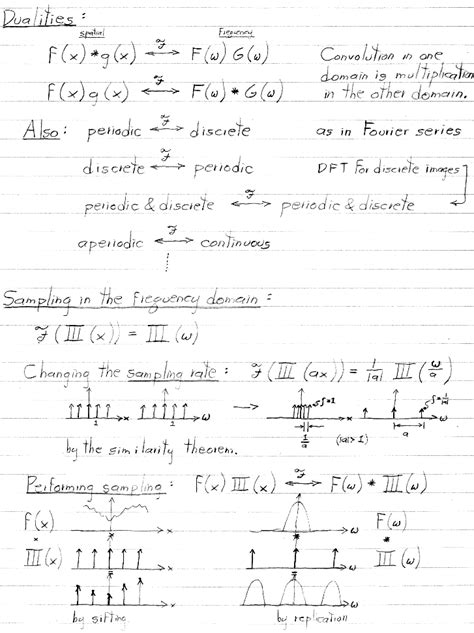 Dualities :
spatial Frequency
f(x) * g(x) ⟷ℱ F(ω) G(ω) Convolution in one
domain is multiplication
f(x) g(x) ⟷ℱ F(ω) * G(ω) in the other domain.
Also : periodic ⟷ℱ discrete as in Fourier series
discrete ⟷ℱ periodic DFT for discrete images
periodic & discrete ⟷ℱ periodic & discrete
aperiodic ⟷ℱ continuous
⋮
Sampling in the frequency domain :
ℱ(III(x)) = III(ω)
Changing the sampling rate : ℱ(III(ax)) = 1/|a| III(ω/a)
1 x 1 ω → 1/a ∫=1 x (|a|>1) a ω
by the similarity theorem.
Performing sampling : f(x) III(x) ⟷ℱ F(ω) * III(ω)
f(x) x ω F(ω)
× * *
III(x) x ω III(ω)
= =
x ω
by sifting by replication